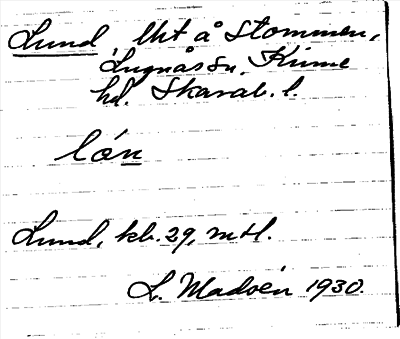 Lund, lht å Stommen,
Lugnås sn. Kinne
hd. Skarab. l.
lón
Lund, kb. 29, mtl.
L. Madsén 1930.